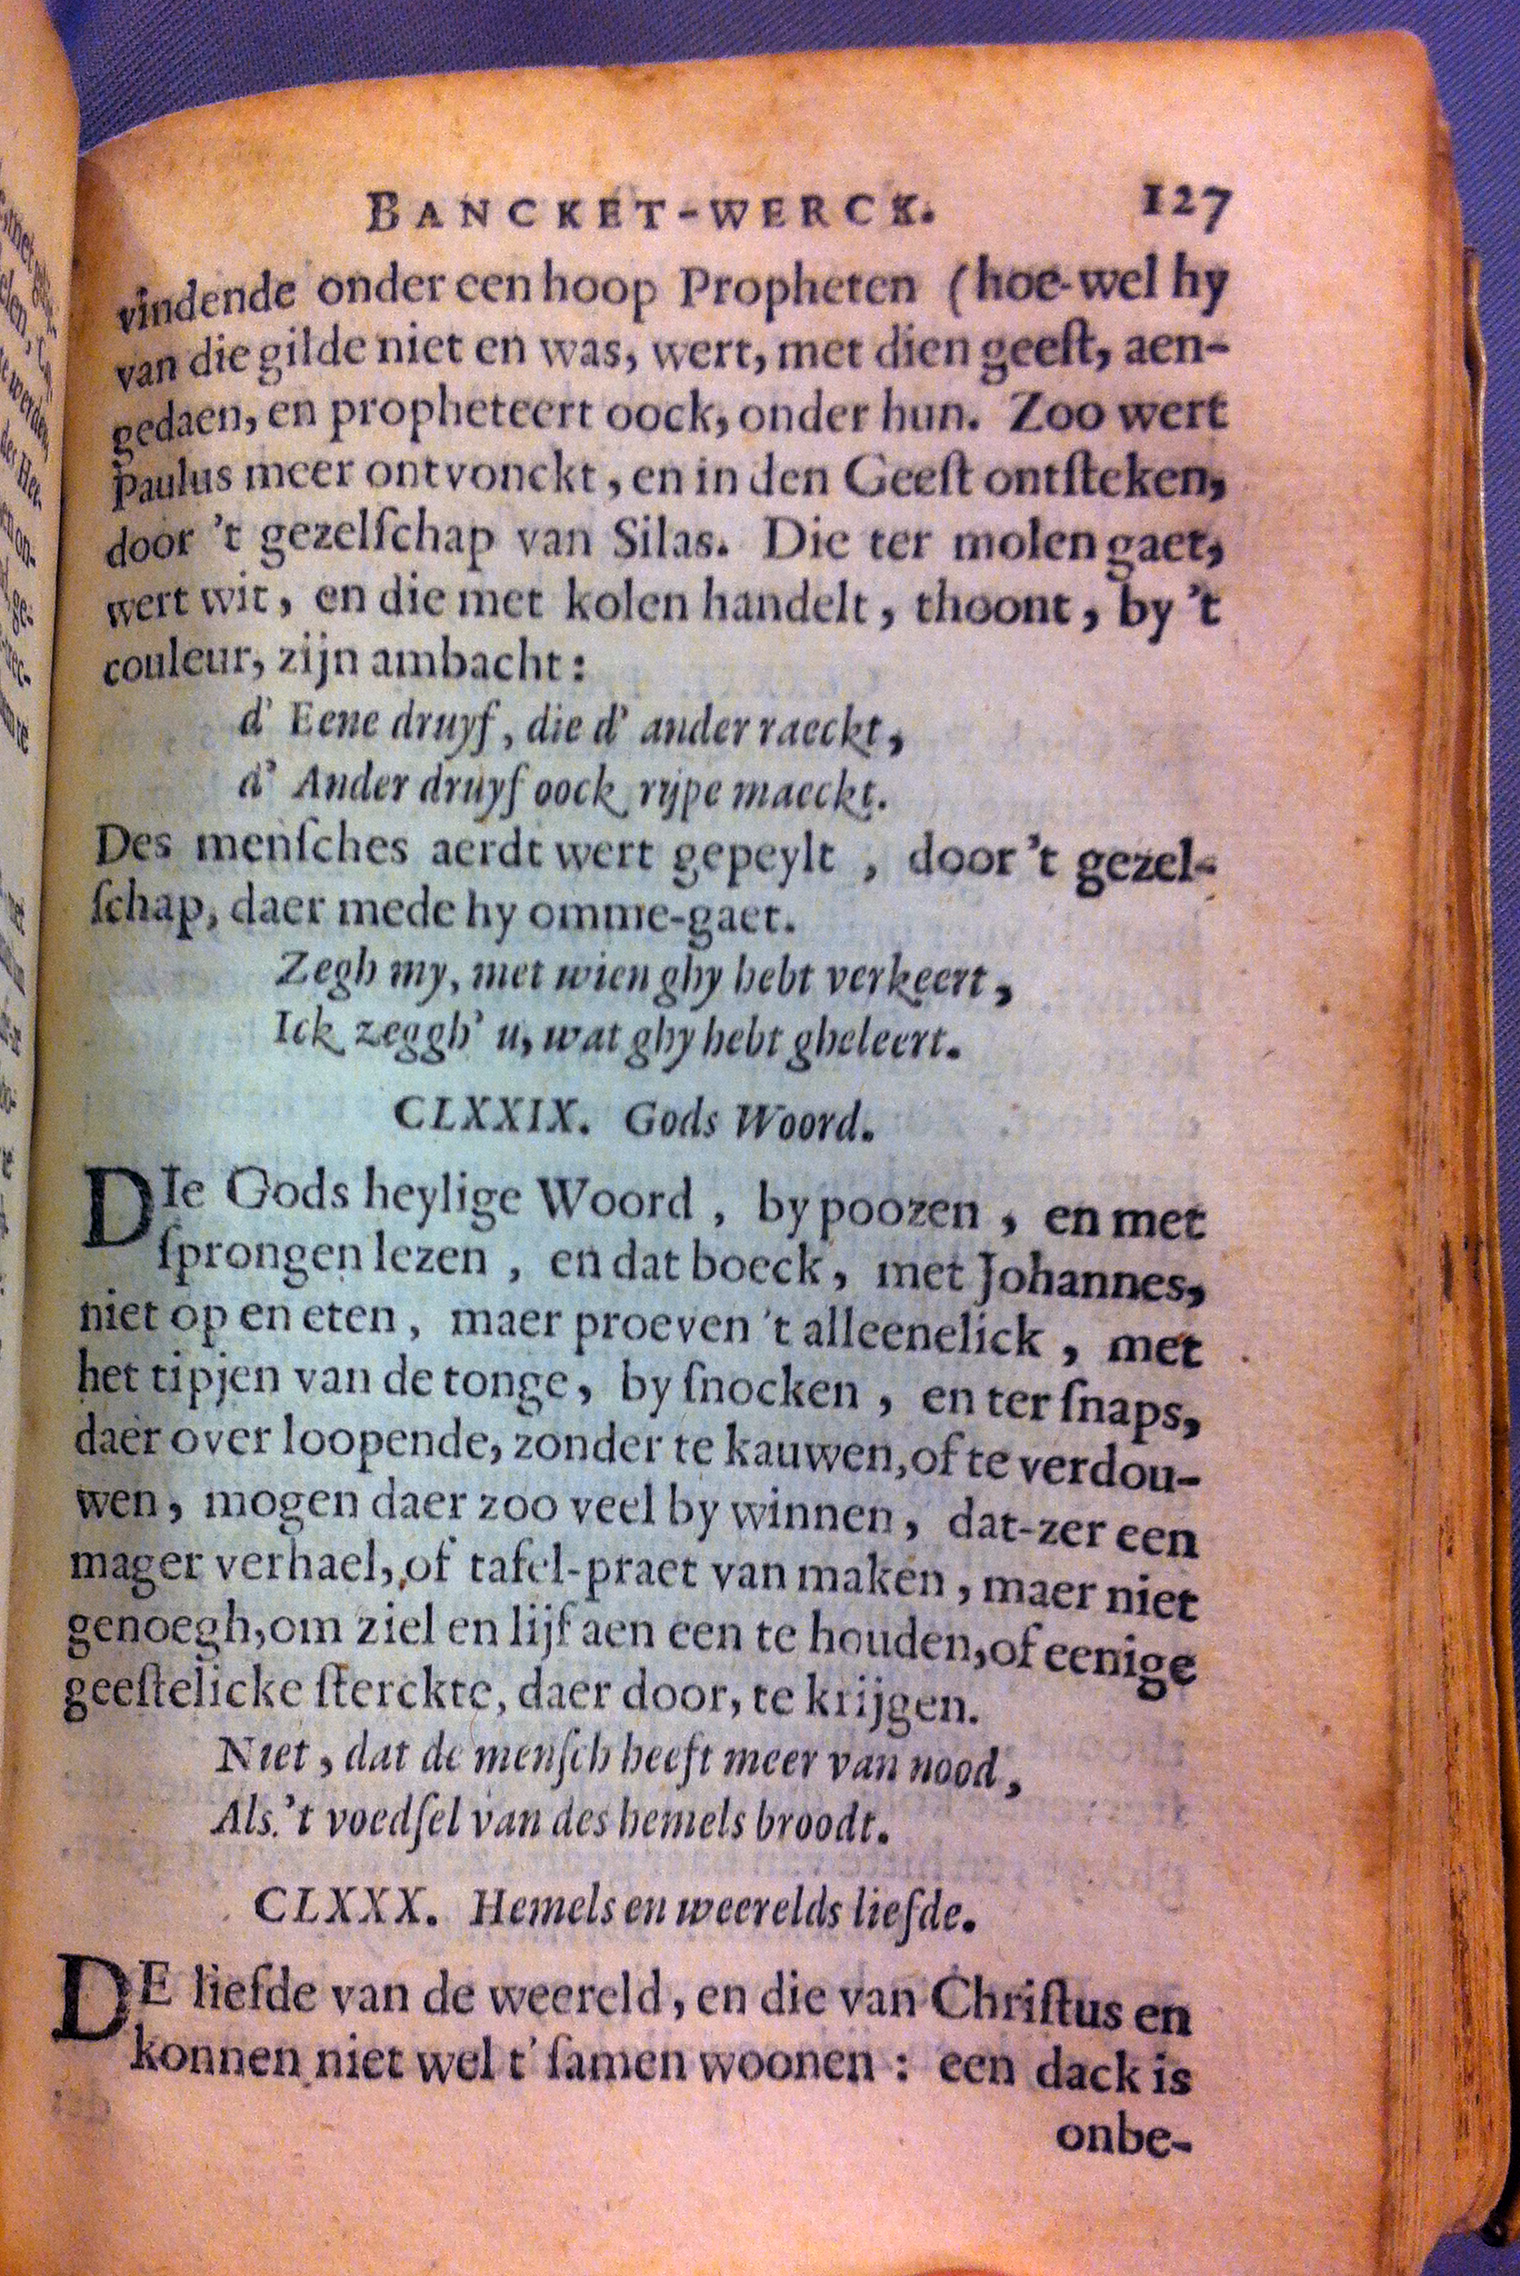 BANCKET-WERCK. 127
vindende onder een hoop Propheten (hoe-wel hy
van die gilde niet en was, wert, met dien geeſt, aen-
gedaen, en propheteert oock, onder hun. Zoo wert
Paulus meer ontvonckt, en in den Geeſt ontſteken,
door 't gezelſchap van Silas. Die ter molen gaet,
wert wit, en die met kolen handelt, thoont, by 't
couleur, zijn ambacht:
d' Eene druyf, die d' ander raeckt,
d' Ander druyf oock rijpe maeckt.
Des menſches aerdt wert gepeylt, door 't gezel-
ſchap, daer mede hy omme-gaet.
Zegh my, met wien ghy hebt verkeert,
Ick zeggh' u, wat ghy hebt gheleert.
CLXXIX. Gods Woord.
DIe Gods heylige Woord, by poozen, en met
ſprongen lezen, en dat boeck, met Johannes,
niet op en eten, maer proeven 't alleenelick, met
het tipjen van de tonge, by ſnocken, en ter ſnaps,
daer over loopende, zonder te kauwen, of te verdou-
wen, mogen daer zoo veel by winnen, dat-zer een
mager verhael, of tafel-praet van maken, maer niet
genoegh, om ziel en lijf aen een te houden, of eenige
geeſtelicke ſterckte, daer door, te krijgen.
Niet, dat de menſch heeft meer van nood,
Als 't voedſel van des hemels broodt.
CLXXX. Hemels en weerelds liefde.
DE liefde van de weereld, en die van Chriſtus en
konnen niet wel t' ſamen woonen: een dack is
onbe-